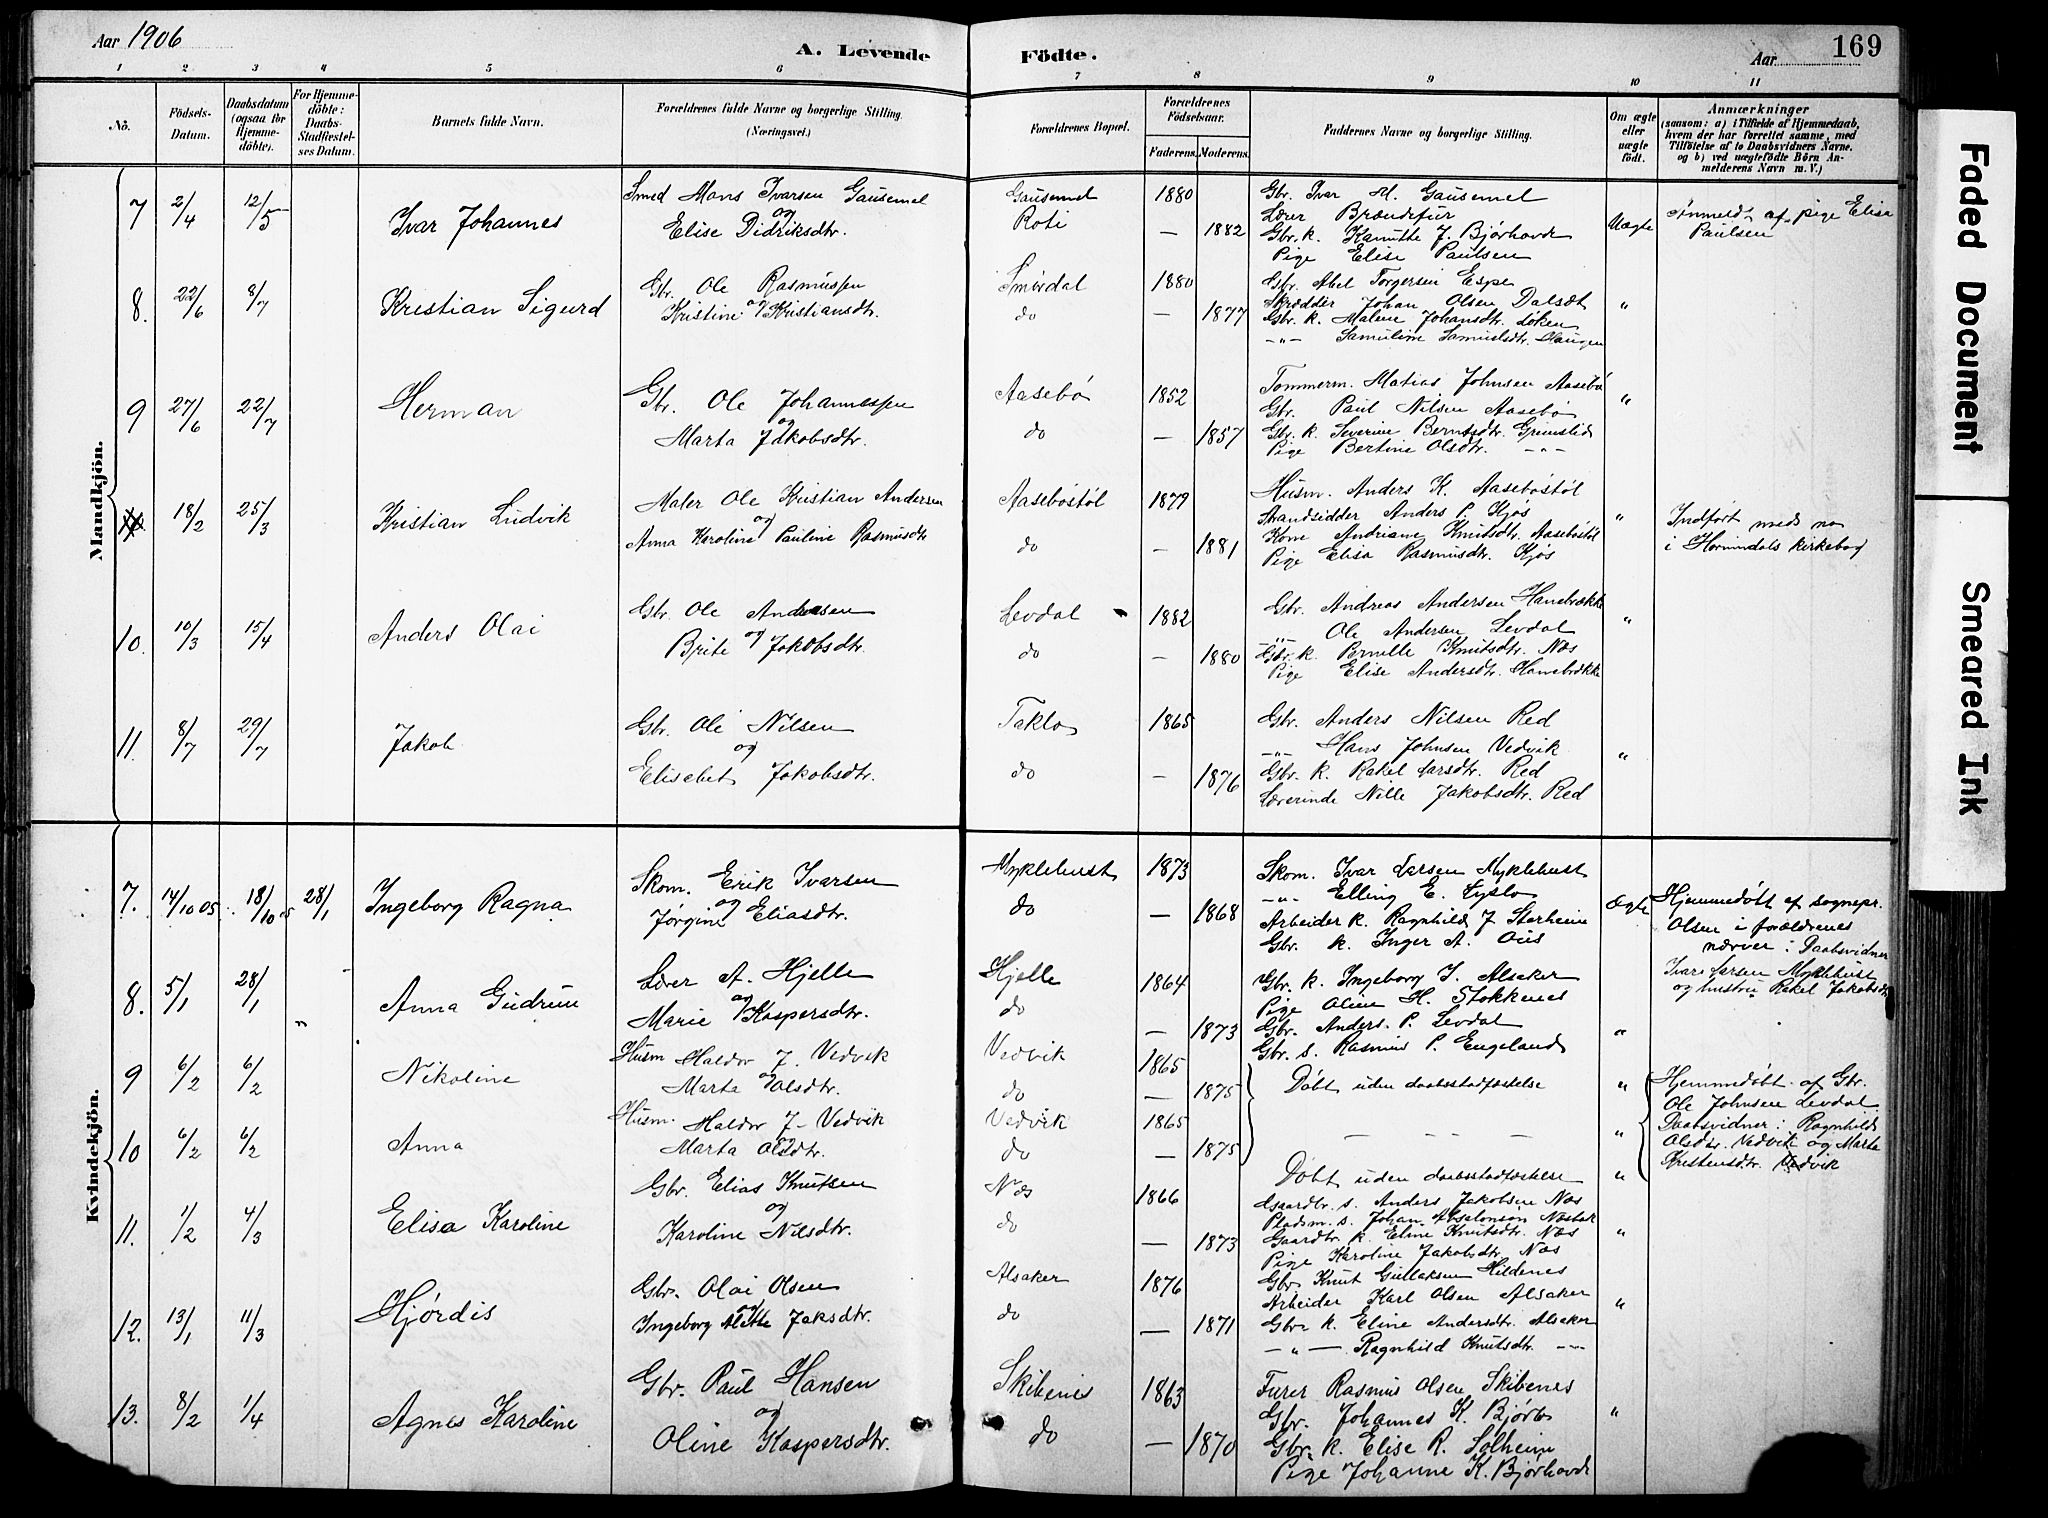 Aar 1906
A. Levende Födte.
Aar 169
1 2 3 4 5 6 7 8 9 10 11
No. Födsels-Datum. Daabsdatum (ogsaa for Hjemme-döbte). For Hjemme-döbte: Daabs-Stadfæstel-ses Datum. Barnets fulde Navn. Forældrenes fulde Navne og borgerlige Stilling. (Næringsvei.) Forældrenes Bopæl. Forældrenes Födselsaar. Faderens. Moderens. Faddernes Navne og borgerlige Stilling. Om ægte eller uægte födt. Anmærkninger (saasom: a) i Tilfælde af Hjemmedaab, hvem der har forrettet samme, med Tilföielse af to Daabsvidners Navne, og b) ved uægtefödte Börn An-melderens Navn m. V.)
Mandkjön.
7 2/4 12/5 Ivar Johannes
Smed Mons Ivarsen Gausemel
og
Elise Didriksdtr.
Gausemel
Roti
1880
— 1882
Gbr. Ivar M. Gausemel
Lærer Brændefur
Gbr. k. Kanutte J. Bjørhovde
Pige Elise Paulsen
Uægte
Anmeldt af pige Elisa
Paulsen
8. 22/6 8/7 Kristian Sigurd
Gbr. Ole Rasmussen
og
Kristine Kristiansdtr.
Smørdal
do
1880
— 1877
Gbr. Abel Torgersen Espe
Skrædder Johan Olsen Dalsæt
Gbr. k. Malene Johansdtr. Løken
— " — Samuline Samuelsdtr. Haugen
"
9 27/6 22/7 Herman
Gbr. Ole Johannessen
og
Marta Jakobsdtr.
Aasebø
do
1852
— 1857
Tømmerm. Matias Johnsen Aasebø
Gbr. Paul Nilsen Aasebø
Gbr. k. Severine Berntsdtr. Grimstid
Pige Bertine Olsdtr. — " —
"
18/2 25/3 Kristian Ludvik
Maler Ole Kristian Andersen
og
Anna Karoline Pauline Rasmusdtr
Aasebøstøl
do
1879
— 1881
Husm. Anders K. Aasebøstøl
Strandsidder Anders P. Kjøs
Kone Andriane Knutsdtr. Aasebøstøl
Pige Elisa Rasmusdtr. Kjøs
"
Indført med no
i Hornindals kirkebog
10. 10/3 15/4 Anders Olai
Gbr. Ole Andersen
og
Brite Jakobsdtr.
Levdal
do
1882
— 1880
Gbr. Andreas Andersen Hanebrække
— " — Ole Andersen Levdal
Gbr. k. Pernille Knutsdtr. Nos
Pige Elise Andersdtr. Hanebrække
"
11. 8/7 29/7 Jakob
Gbr. Ole Nilsen
og
Elisebet Jakobsdtr.
Taklo
do
1865
— 1876
Gbr. Anders Nilsen Red
— " — Hans Johnsen Vedvik
Gbr. k. Rakel Larsdtr. Red
Lærerinde Nille Jakobsdtr. Red
"
Kvindekjön.
7. 14/10 05 18/10 05 28/1 Ingeborg Ragna
Skom. Erik Ivarsen
og
Jørgine Eliasdtr.
Myklebust
do
1873
— 1868
Skom. Ivar Larsen Myklebust
— " — Elling E. Lyslo
Arbeider k. Ragnhild J Storheim
Gbr. k. Inger A. Ous
Ægte
Hjemmedøbt af sognepr.
Olsen i forældrenes
nærver: Daabsvidner
Ivar Larsen Myklebust
og hustru Rakel Jakobsdtr
8. 5/1 28/1 Anna Gudrun
Lærer A. Hjelle
og
Marie Kaspersdtr.
Hjelle
do
1864
— 1873
Gbr. k. Ingeborg J. Alsaker
Pige Oline H. Stokkenes
Gbr. Anders. P. Levdal
Gbr. s. Rasmus P. Engeland
"
9 6/2 6/2 Nikoline
Husm Haldor J. Vedvik
og
Marta Olsdtr.
Vedvik
do
1865
— 1875
Døbt uden daabsstadfæstelse
"
Hjemmedøbt af Gbr.
Ole Johnsen Levdal
Daabsvidner: Ragnhild
Olsdtr. Vedvik og Marta
Kristensdtr. Vedvik
10 6/2 6/2 Anna
Husm. Haldor J. Vedvik
Marta Olsdtr.
Vedvik
do
1865
— 1875
— — — —
Døbt uden daabsstadfæstelse
"
11. 1/2 4/3 Elisa Karoline
Gbr. Elias Knutsen
og
Karoline Nilsdtr.
Nos
do
1866
— 1873
Gaardbr. s. Anders Jakobsen Nos
Pladsm. s. Johan Absalonsøn Nosbak
Gaardbr. k. Eline Knutsdtr. Nos
Pige Karoline Jakobsdtr. Nos
"
12. 13/1 11/3 Hjørdis
Gbr. Olai Olsen
og
Ingeborg Alette Jaksdtr.
Alsaker
do
1876
— 1871
Gbr Knut Gullaksen Hildenes
Arbeider Karl Olsen Alsaker
Gbr. k. Eline Andersdtr. Alsaker
— " — Ragnhild Knutsdtr. — " —
"
13. 8/2 1/4 Agnes Karoline
Gbr. Paul Hansen
og
Oline Kaspersdtr.
Skibenes
do
1863
— 1870
Furer Rasmus Olsen Skibenes
Gbr. Johannes K. Bjørlo
Gbr. k. Elise R. Solheim
Pige Johanne K. Bjørhovde
"
Faded Document
Smeared Ink